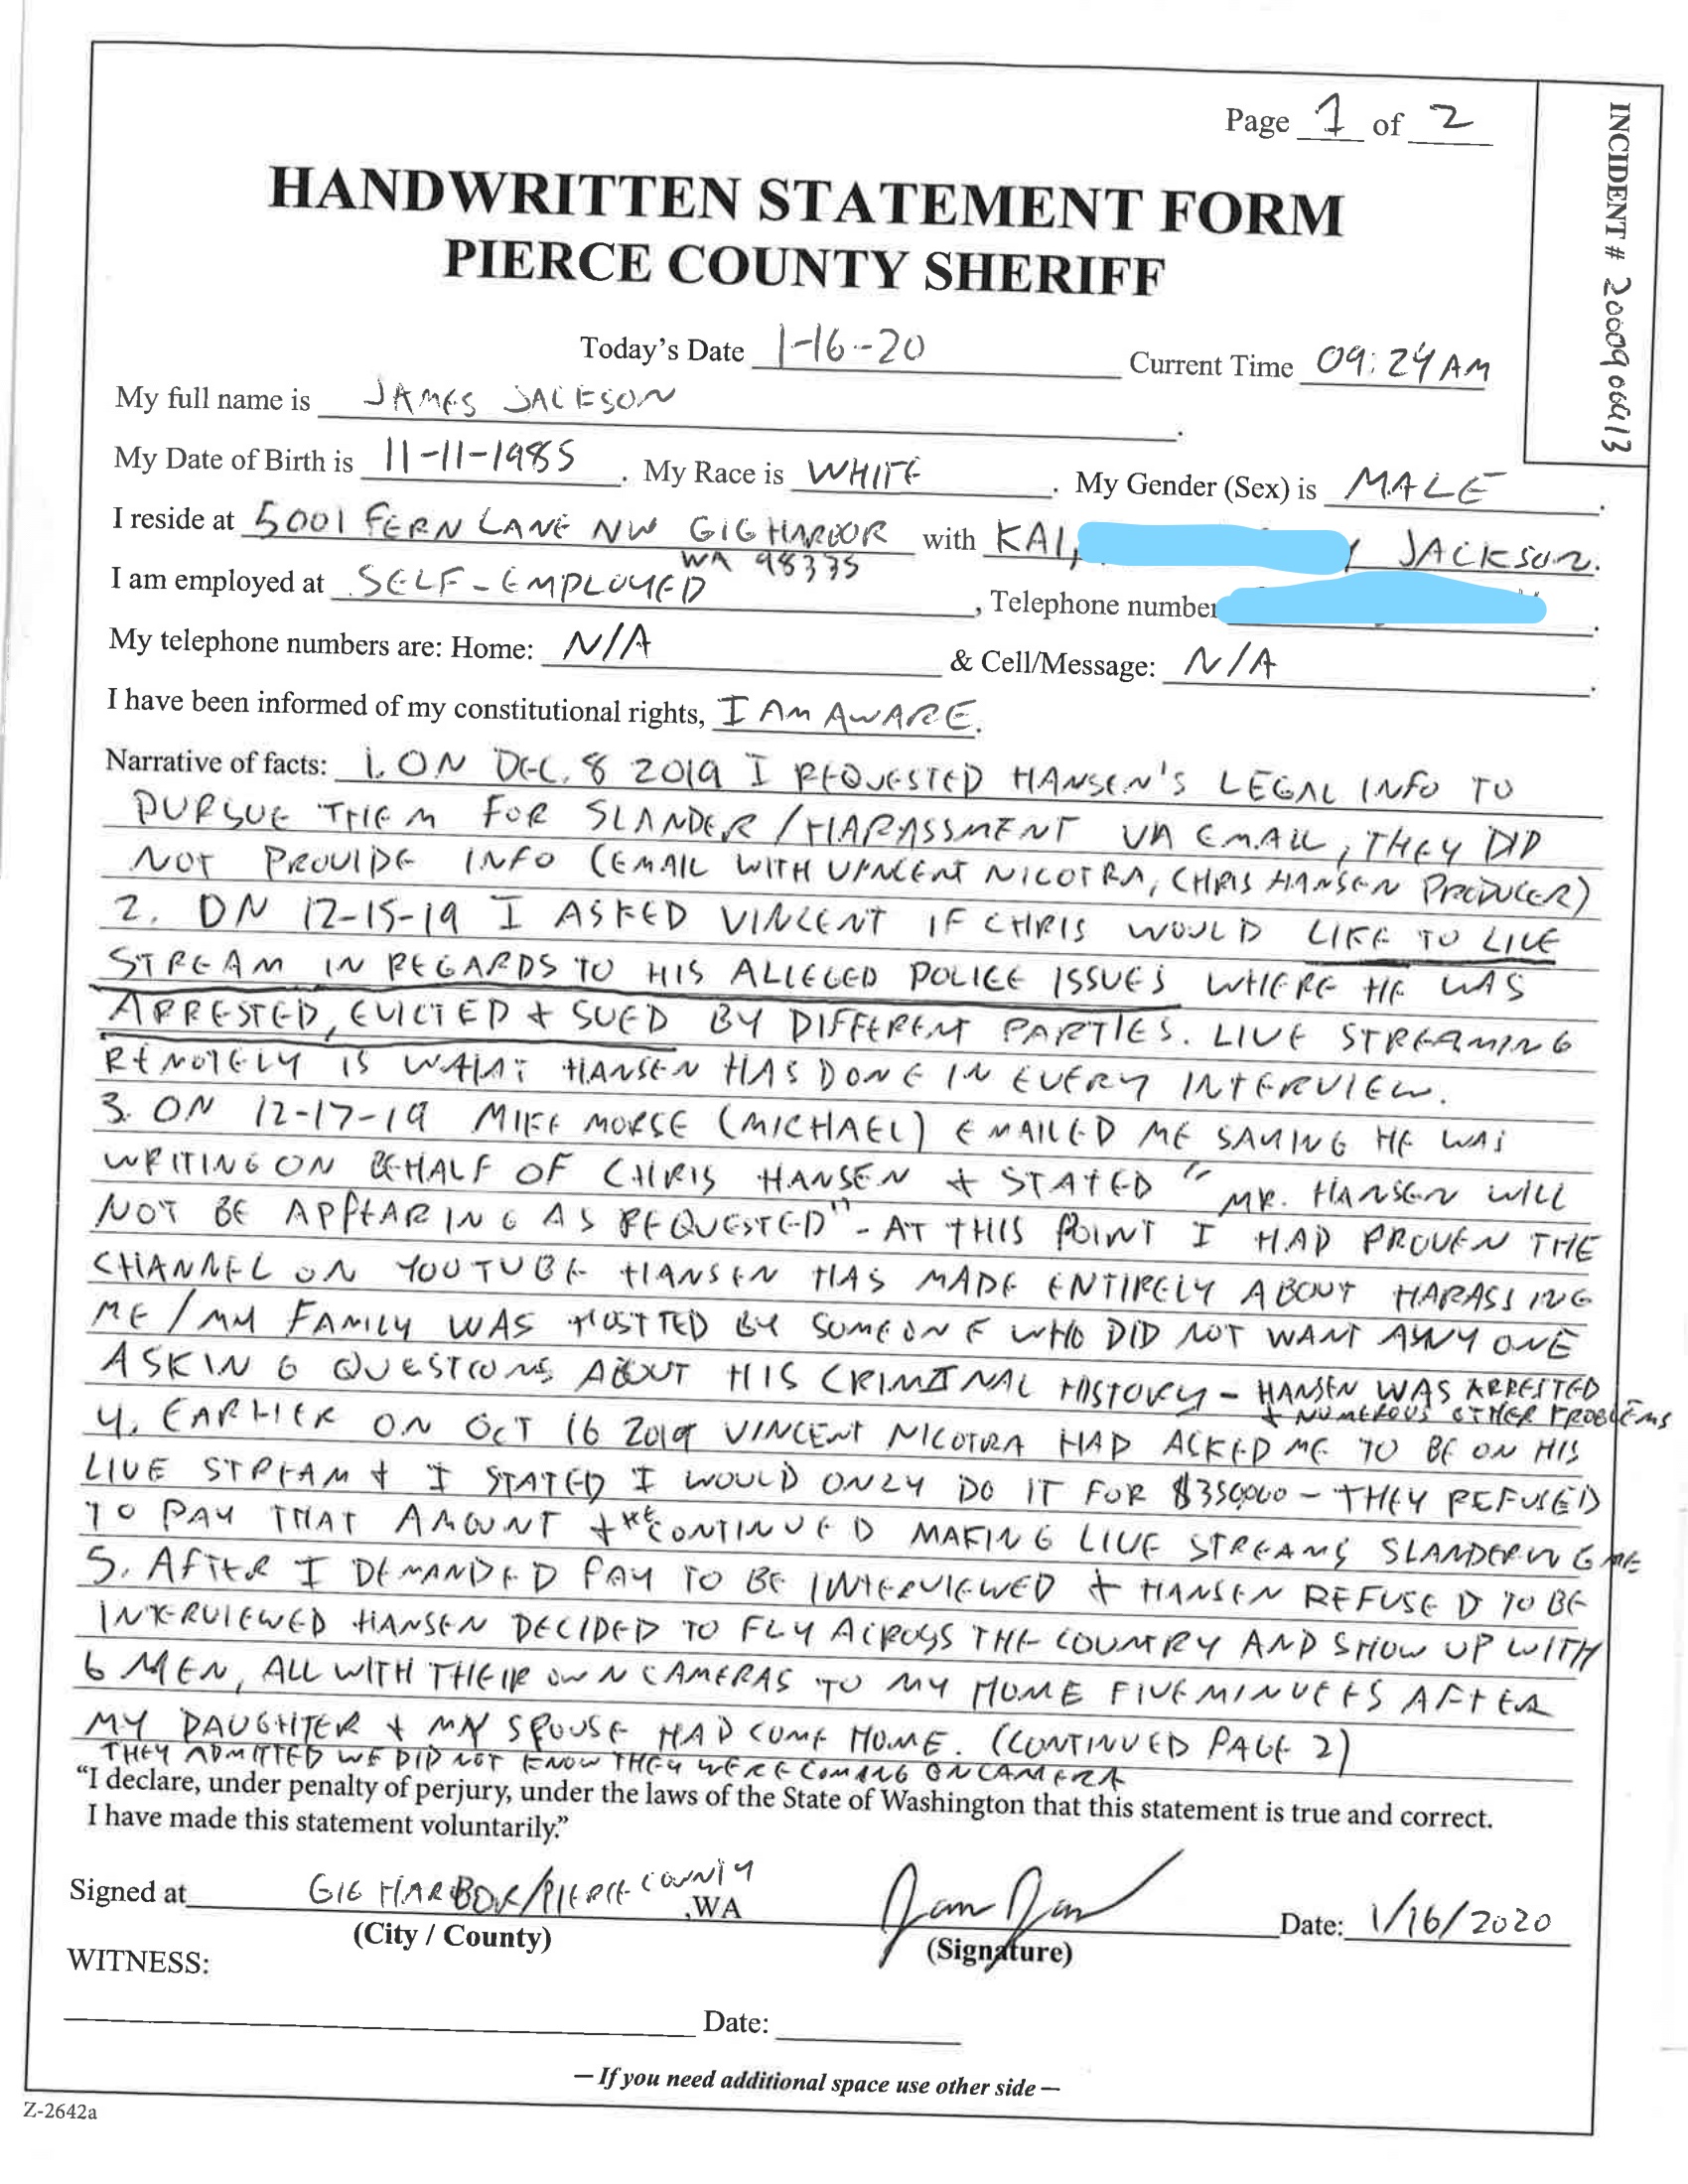 Page 1 of 2
INCIDENT # 2000900913
HANDWRITTEN STATEMENT FORM
PIERCE COUNTY SHERIFF
Today's Date 1-16-20 Current Time 09:24 AM
My full name is JAMES JACKSON.
My Date of Birth is 11-11-1985. My Race is WHITE. My Gender (Sex) is MALE.
I reside at 5001 FERN LANE NW GIG HARBOR with KAI, JACKSON.
WA 98335
I am employed at SELF-EMPLOYED, Telephone number
My telephone numbers are: Home: N/A & Cell/Message: N/A.
I have been informed of my constitutional rights, I AM AWARE.
Narrative of facts: 1. ON DEC. 8 2019 I REQUESTED HANSEN'S LEGAL INFO TO
PURSUE THEM FOR SLANDER/HARASSMENT VIA EMAIL, THEY DID
NOT PROVIDE INFO (EMAIL WITH VINCENT NICOTRA, CHRIS HANSEN PRODUCER)
2. ON 12-15-19 I ASKED VINCENT IF CHRIS WOULD LIKE TO LIVE
STREAM IN REGARDS TO HIS ALLEGED POLICE ISSUES WHERE HE WAS
ARRESTED, EVICTED + SUED BY DIFFERENT PARTIES. LIVE STREAMING
REMOTELY IS WHAT HANSEN HAS DONE IN EVERY INTERVIEW.
3. ON 12-17-19 MIKE MORSE (MICHAEL) EMAILED ME SAYING HE WAS
WRITING ON BEHALF OF CHRIS HANSEN + STATED "MR. HANSEN WILL
NOT BE APPEARING AS REQUESTED" - AT THIS POINT I HAD PROVEN THE
CHANNEL ON YOUTUBE HANSEN HAS MADE ENTIRELY ABOUT HARASSING
ME/MY FAMILY WAS HOSTTED BY SOMEONE WHO DID NOT WANT ANYONE
ASKING QUESTIONS ABOUT HIS CRIMINAL HISTORY - HANSEN WAS ARRESTED
+ NUMEROUS OTHER PROBLEMS
4. EARLIER ON OCT 16 2019 VINCENT NICOTRA HAD ASKED ME TO BE ON HIS
LIVE STREAM + I STATED I WOULD ONLY DO IT FOR $350,000 - THEY REFUSED
TO PAY THAT AMOUNT + CONTINUED MAKING LIVE STREAMS SLANDERING ME
5. AFTER I DEMANDED PAY TO BE INTERVIEWED + HANSEN REFUSED TO BE
INTERVIEWED HANSEN DECIDED TO FLY ACROSS THE COUNTRY AND SHOW UP WITH
6 MEN, ALL WITH THEIR OWN CAMERAS TO MY HOME FIVE MINUTES AFTER
MY DAUGHTER + MY SPOUSE HAD COME HOME. (CONTINUED PAGE 2)
THEY ADMITTED WE DID NOT KNOW THEY WERE COMING ON CAMERA
"I declare, under penalty of perjury, under the laws of the State of Washington that this statement is true and correct.
I have made this statement voluntarily."
Signed at GIG HARBOR/PIERCE COUNTY, WA Date: 1/16/2020
(City / County) (Signature)
WITNESS:
Date:
— If you need additional space use other side —
Z-2642a